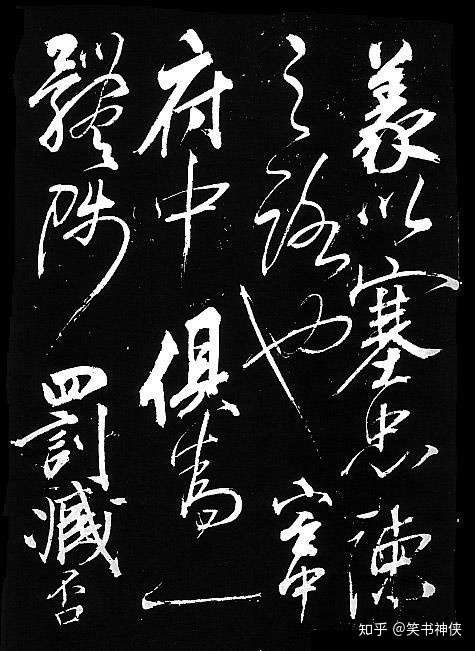 義以塞忠諫
之路也宮中
府中俱為一
體陟罰臧否
知乎 @笑书神侠